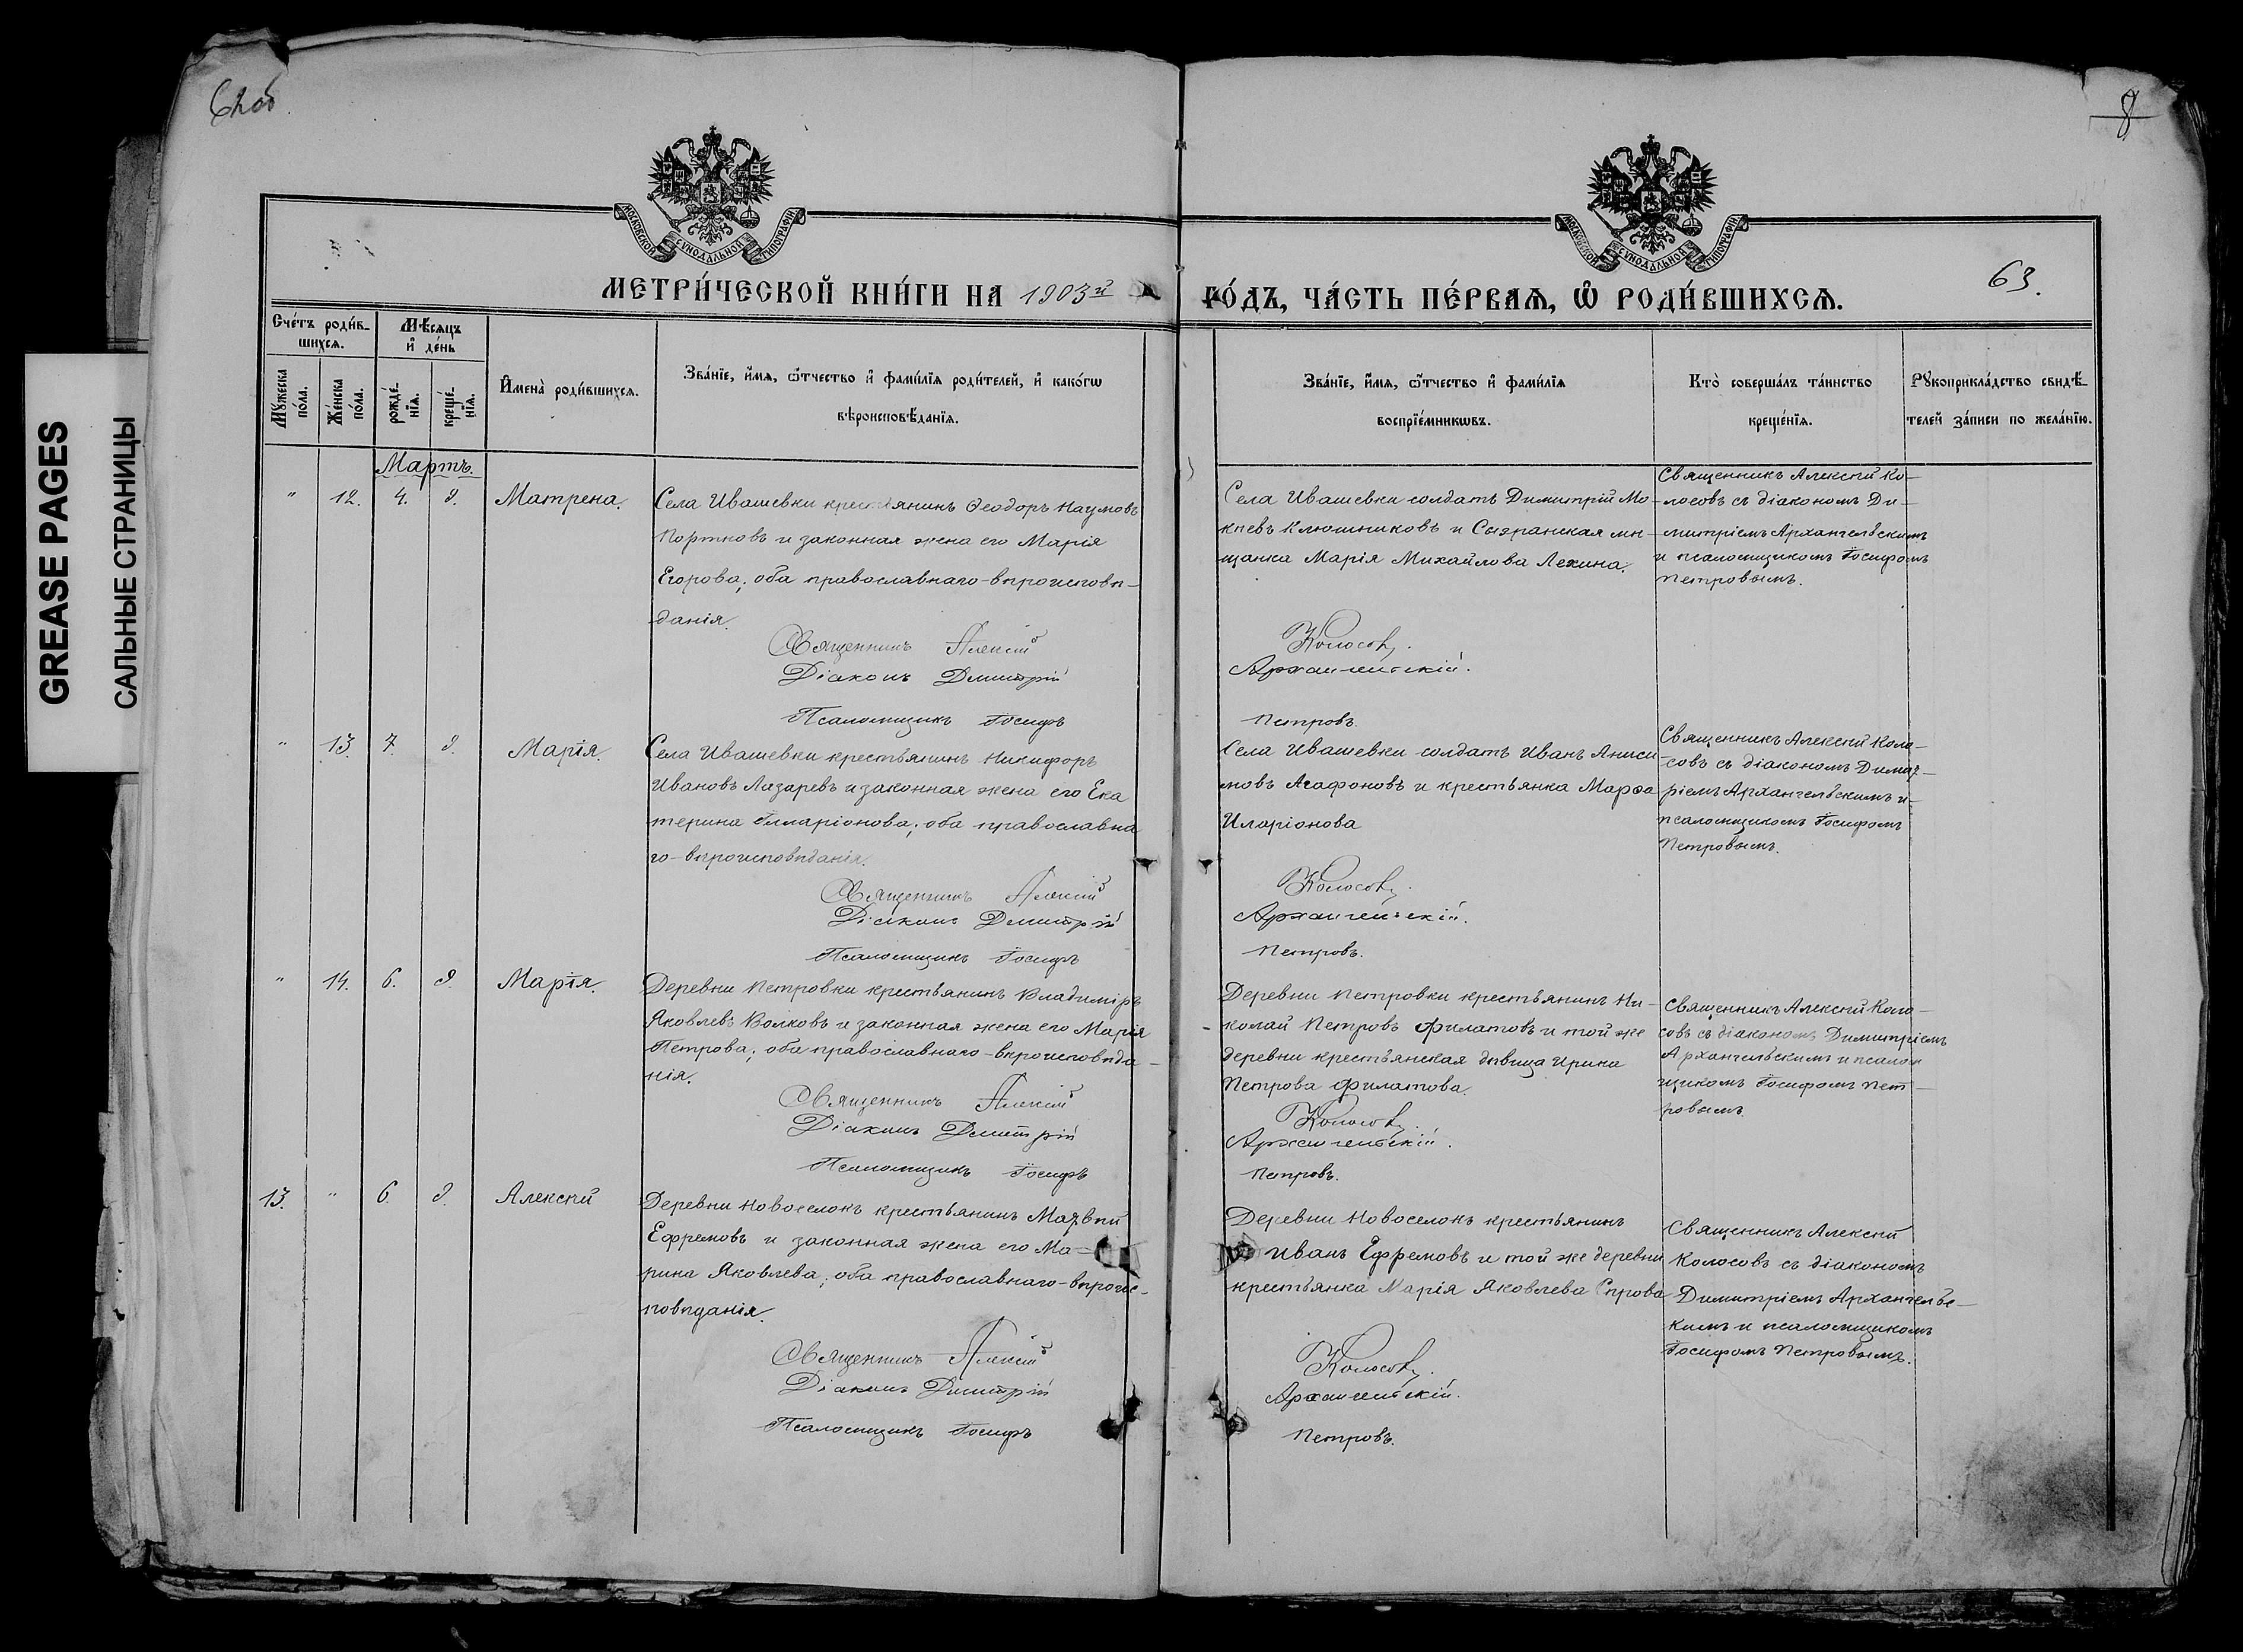 GREASE PAGES
САЛЬНЫЕ СТРАНИЦЫ
62об.
8
МОСКОВСКОЙ СУНОДАЛЬНОЙ ТИПОГРАФІИ
МОСКОВСКОЙ СУНОДАЛЬНОЙ ТИПОГРАФІИ
63.
МЕТРИ́ЧЕСКОЙ КНИ́ГИ НА 1903й
ГО́ДЪ, ЧА́СТЬ ПЕ́РВАѦ, Ѡ҆ РОДИ́ВШИХСѦ.
Сче́тъ роди́в-
шихсѧ.
Мѣ́сѧцъ
и҆ де́нь
Мꙋ́жеска
по́ла.
Же́нска
по́ла.
рожде́-
нїѧ.
креще́-
нїѧ.
И҆мена̀ роди́вшихсѧ.
Зва́нїе, и҆́мѧ, ѻ҆́тчество и҆ фами́лїѧ роди́телей, и҆ како́гѡ
вѣроисповѣ́данїѧ.
Зва́нїе, и҆́мѧ, ѻ҆́тчество и҆ фами́лїѧ
воспрїе́мникѡвъ.
Кто̀ соверша́лъ та́инство
креще́нїѧ.
Рꙋкоприкла́дство свидѣ́-
телей за́писи по жела́нїю.
Мартъ.
" 12. 4. 9. Матрена.
Села Ивашевки крестьянинъ Ѳеодоръ Наумовъ
Портновъ и законная жена его Марія
Егорова; оба православнаго-вѣроисповѣ-
данія.
Священникъ Алексій
Діаконъ Димитрій
Псаломщикъ Іосифъ
Села Ивашевки солдатъ Димитрій Мо-
кѣевъ Клюшниковъ и Сызранская мѣ-
щанка Марія Михайлова Лехина.
Колосовъ.
Архангельскій.
Петровъ.
Священникъ Алексій Ко-
лосовъ съ діакономъ Ди-
митріемъ Архангельскимъ
и псаломщикомъ Іосифомъ
Петровымъ.
" 13. 7. 9. Марія.
Села Ивашевки крестьянинъ Никифоръ
Ивановъ Лазаревъ и законная жена его Ека
терина Илларіонова; оба православна
го-вѣроисповѣданія.
Священникъ Алексій
Діаконъ Димитрій
Псаломщикъ Іосифъ
Села Ивашевки солдатъ Иванъ Аниси
мовъ Агафоновъ и крестьянка Марѳа
Иларіонова
Колосовъ.
Архангельскій.
Петровъ.
Священникъ Алексій Коло-
совъ съ діакономъ Димит-
ріемъ Архангельскимъ и-
псаломщикомъ Іосифомъ
Петровымъ.
" 14. 6. 9. Марія.
Деревни Петровки крестьянинъ Владиміръ
Яковлевъ Волковъ и законная жена его Марія
Петрова; оба православнаго-вѣроисповѣда-
нія.
Священникъ Алексій
Діаконъ Димитрій
Псаломщикъ Іосифъ
Деревни Петровки крестьянинъ Ни-
колай Петровъ Филатовъ и той же
деревни крестьянская дѣвица Ирина
Петрова Филатова.
Колосовъ.
Архангельскій.
Петровъ.
Священникъ Алексій Коло-
совъ съ діакономъ Димитріемъ
Архангельскимъ и псалом
щикомъ Іосифомъ Пет-
ровымъ
13. " 6. 9. Алексѣй
Деревни Новоселокъ крестьянинъ Матвѣй
Ефремовъ и законная жена его Ма-
рина Яковлева; оба православнаго-вѣроис-
повѣданія.
Священникъ Алексій
Діаконъ Димитрій
Псаломщикъ Іосифъ
Деревни Новоселокъ крестьянинъ
Иванъ Ефремовъ и той же деревни
крестьянка Марія Яковлева
Колосовъ.
Архангельскій.
Петровъ.
Священникъ Алексій
Колосовъ съ діакономъ
Димитріемъ Архангельс-
кимъ и псаломщикомъ
Іосифомъ Петровымъ.